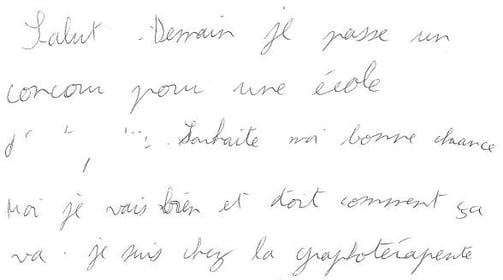 Salut. Demain je passe un
concour pour une école
d' . Souhaite moi bonne chance
Moi je vais bien et toit comment ça
va. je suis chez la graphotérapente